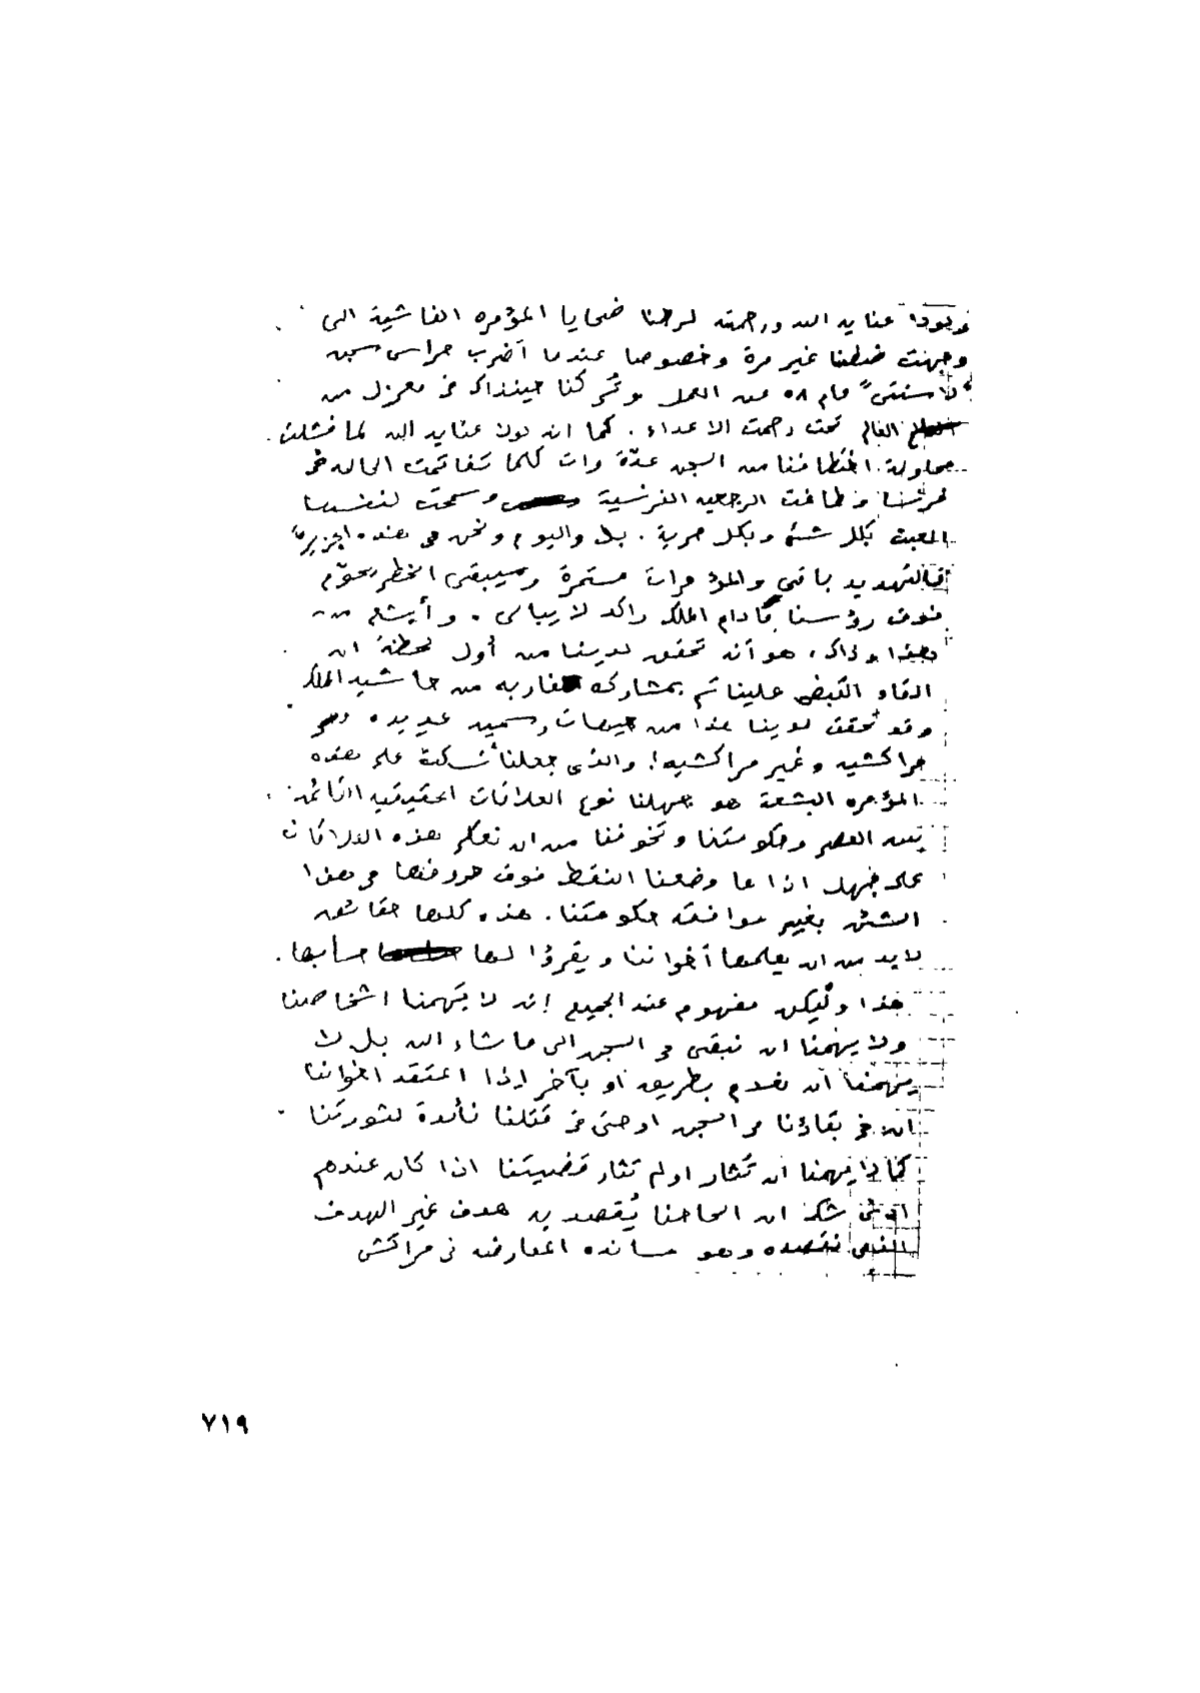 ولولا عناية الله ورحمته لرحنا ضحايا المؤمره الفاشية التى
وجهت ضدنا غير مرة وخصوصا عندما أضرب حراس سجن
"لاسنتى" عام ٥٨ عن العمل وتُركنا حينذاك فى معزل من
العالم تحت رحمت الاعداء . كما انه لولا عناية الله لما فشلت
محاولة اختطافنا من السجن عدّة مرات كلما تفاقمت الحاله فى
فرنسا وطاغت الرجعيه الفرنسية وسمحت لنفسها
العبث بكل شئ وبكل حرية . بل واليوم ونحن فى هذه الجزيرة
فالتهديد باقى والمؤمرات مستمرة وسيبقى الخطر يحوّم
فوق رؤسنا مادام الملك راكد لا يبالى . وأبشع من
هذا وذاك ، هو أنه تحقق لدينا من أول لحظة ان
القاء القبض علينا تم بمشاركة مغاربه من حاشية الملك
وقد تحقق لدينا هذا من جهات رسميه عديده
مراكشيه وغير مراكشيه! والذى جعلنا نسكت على هذه
المؤمره البشعة هو جهلنا نوع العلاقات الحقيقيه القائمة
بين القصر وحكومتنا وتخوفنا من ان نعكر هذه العلاقات
على جهل اذا ما وضعنا النقط فوق حروفها فى هذا
الشئن بغير موافقة حكومتنا . هذه كلها حقائق
لابد من ان يعلمها أخواننا ويقرؤا لها حسابها .
هذا وليكن مفهوم عند الجميع إنه لا يهمنا اشخاصنا
ولا يهمنا ان نبقى فى السجن الى ماشاء الله بل لا
يهمنا ان نعدم بطريق او بآخر اذا اعتقد اخواننا
ان فى بقاؤنا فى السجن او حتى فى قتلنا فائدة لثورتنا
كما لا يهمنا ان تثار او لم تثار قضيتنا اذا كان عندهم
ادنى شك ان الحاحنا يُقصد به هدف غير الهدف
الذى نقصده وهو مسانده المعارضه فى مراكش
٧١٩